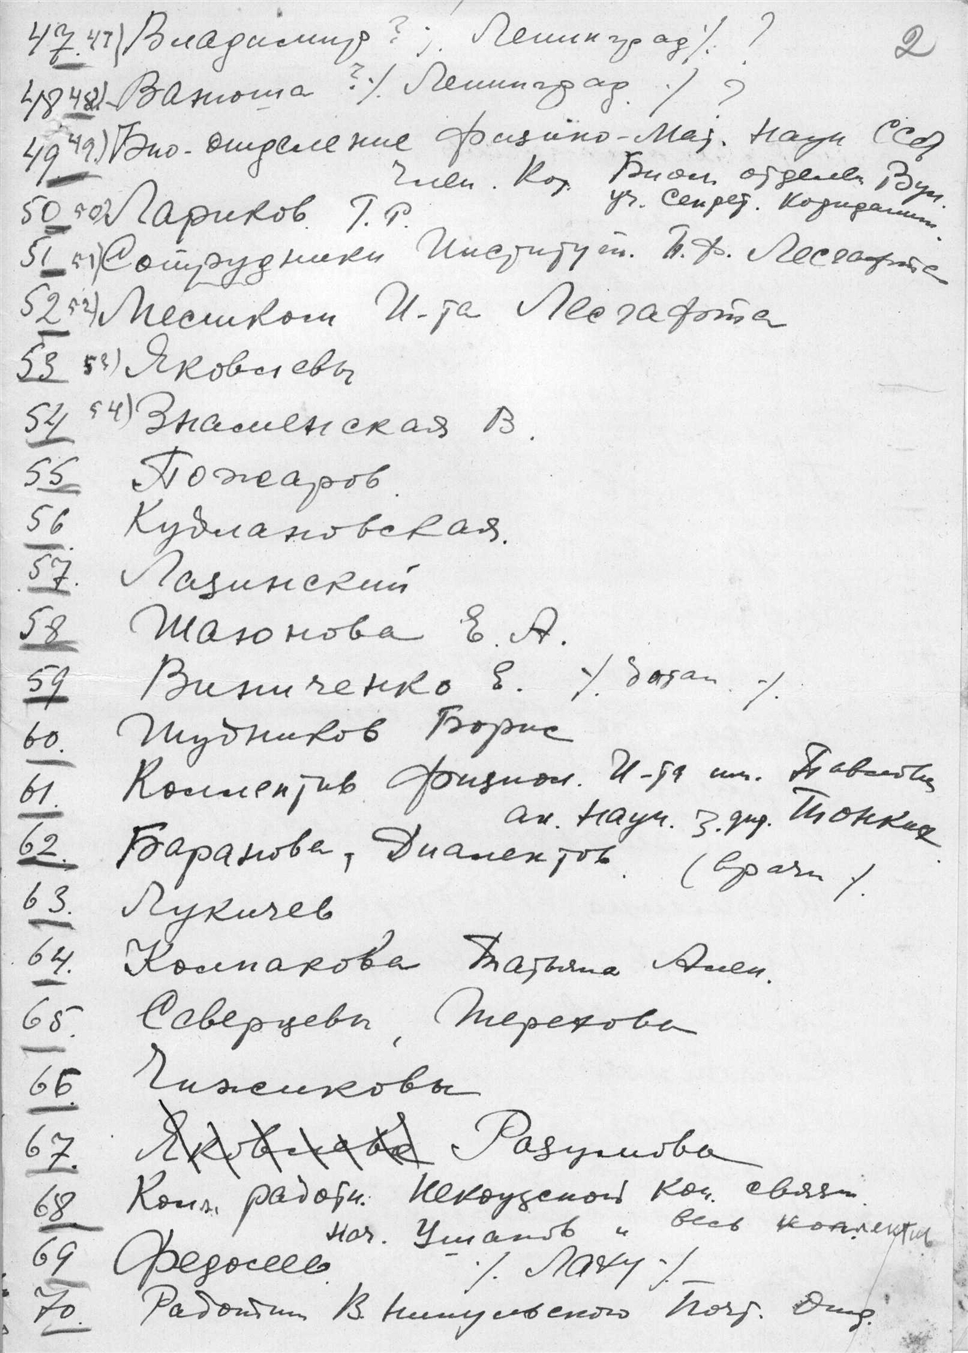 2
47. 47) Владимир ? ·/. Ленинград ·/. ?
48 48) Ванюша ? ·/. Ленинград ·/ ?
49 49) Био-отделение Физико-Мат. Наук СССР
Член. Кор. Биол. отделен
уч. Секрет.
50 50) Лариков. Г. Р.
51 51) Сотрудники Институт. П. Ф. Лесгафта
52 52) Местком И-та Лесгафта
53 53) Яковлевы
54 54) Знаменская В.
55 Пожаров.
56 Кудлановская.
57. Лазинский
58 Шаюнова Е. А.
59 Винниченко Е. ·/. ботан. ·/.
60. Шудников Борис
61. Коллектив физиол. И-та им. Павлова
ак. Наук. З. дир. Тонких
62. Баранова, Диалектов. (врачи ·/.
63. Лукичев
64. Колпакова Татьяна Алек.
65. Северцевы, Терехова
66. Чижиковы
67. Яковлева Разумова
68 Колл. работн. Некоузской кон. связи
нач. Ушаков и весь коллектив
69 Федосеев ·/. ЛАХУ ·/.
70. Работник В. Никульского Почт. Отд.